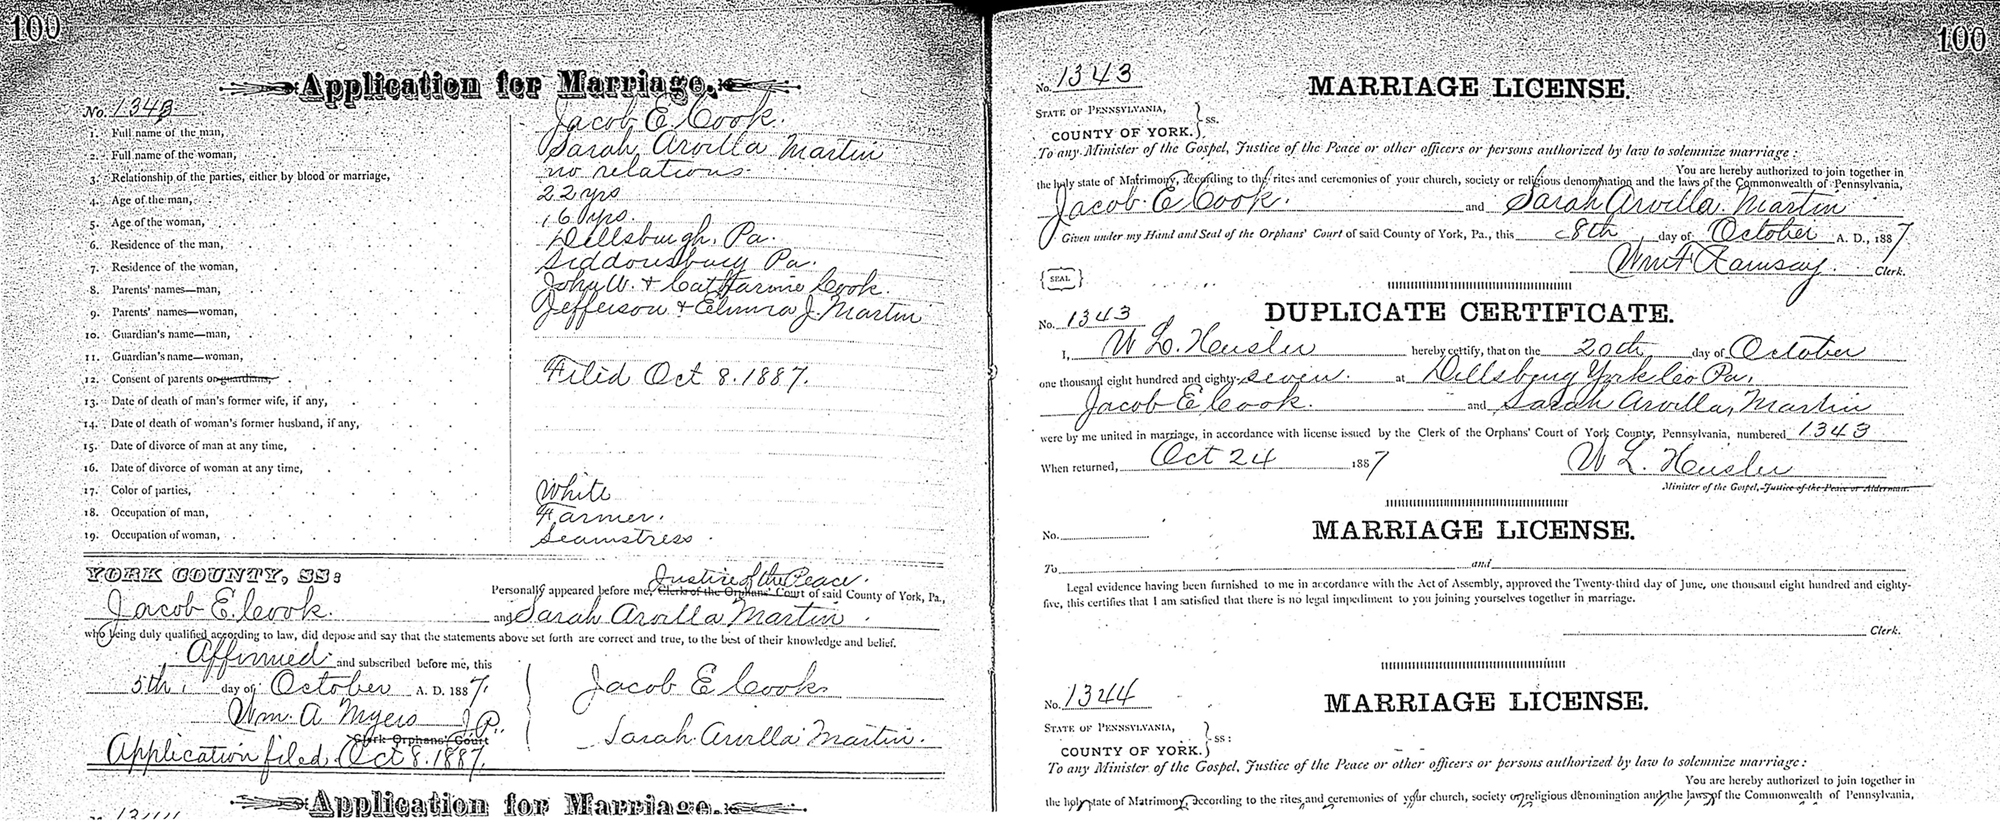 100
Application for Marriage.
No. 1343
1. Full name of the man, Jacob E. Cook.
2. Full name of the woman, Sarah Arvilla Martin
3. Relationship of the parties, either by blood or marriage, no relations.
4. Age of the man, 22 yrs
5. Age of the woman, 16 yrs.
6. Residence of the man, Dillsburgh, Pa.
7. Residence of the woman, Siddonsburg Pa.
8. Parents' names—man, John W. + Catharine Cook.
9. Parents' names—woman, Jefferson + Elmira J. Martin
10. Guardian's name—man,
11. Guardian's name—woman,
12. Consent of parents or guardians, Filed Oct 8. 1887.
13. Date of death of man's former wife, if any,
14. Date of death of woman's former husband, if any,
15. Date of divorce of man at any time,
16. Date of divorce of woman at any time,
17. Color of parties, White
18. Occupation of man, Farmer.
19. Occupation of woman, Seamstress.
YORK COUNTY, SS:
Justice of the Peace.
Personally appeared before me, Clerk of the Orphans' Court of said County of York, Pa.,
Jacob E. Cook. and Sarah Arvilla Martin.
who being duly qualified according to law, did depose and say that the statements above set forth are correct and true, to the best of their knowledge and belief.
Affirmed and subscribed before me, this
5th. day of October A. D. 1887.
Jacob E Cook
Wm. A Myers J.P.
Clerk Orphans' Court
Sarah Arvilla Martin.
Application filed, Oct 8. 1887.
Application for Marriage.
1344
100
No. 1343
MARRIAGE LICENSE.
STATE OF PENNSYLVANIA,
COUNTY OF YORK. ss.
To any Minister of the Gospel, Justice of the Peace or other officers or persons authorized by law to solemnize marriage:
You are hereby authorized to join together in
the holy state of Matrimony, according to the rites and ceremonies of your church, society or religious denomination and the laws of the Commonwealth of Pennsylvania,
Jacob E Cook. and Sarah Arvilla Martin
Given under my Hand and Seal of the Orphans' Court of said County of York, Pa., this 8th day of October A. D., 1887
SEAL
Wm F Ramsay. Clerk.
DUPLICATE CERTIFICATE.
No. 1343
I, W L. Heisler hereby certify, that on the 20th day of October
one thousand eight hundred and eighty-seven. at Dillsburg York Co Pa.
Jacob E Cook. and Sarah Arvilla Martin
were by me united in marriage, in accordance with license issued by the Clerk of the Orphans' Court of York County, Pennsylvania, numbered 1343
When returned, Oct 24 1887 W L. Heisler
Minister of the Gospel, Justice of the Peace or Alderman.
MARRIAGE LICENSE.
No.
To and
Legal evidence having been furnished to me in accordance with the Act of Assembly, approved the Twenty-third day of June, one thousand eight hundred and eighty-
five, this certifies that I am satisfied that there is no legal impediment to you joining yourselves together in marriage.
Clerk.
No. 1344
MARRIAGE LICENSE.
STATE OF PENNSYLVANIA,
COUNTY OF YORK. ss:
To any Minister of the Gospel, Justice of the Peace or other officers or persons authorized by law to solemnize marriage:
You are hereby authorized to join together in
the holy state of Matrimony, according to the rites and ceremonies of your church, society or religious denomination and the laws of the Commonwealth of Pennsylvania,